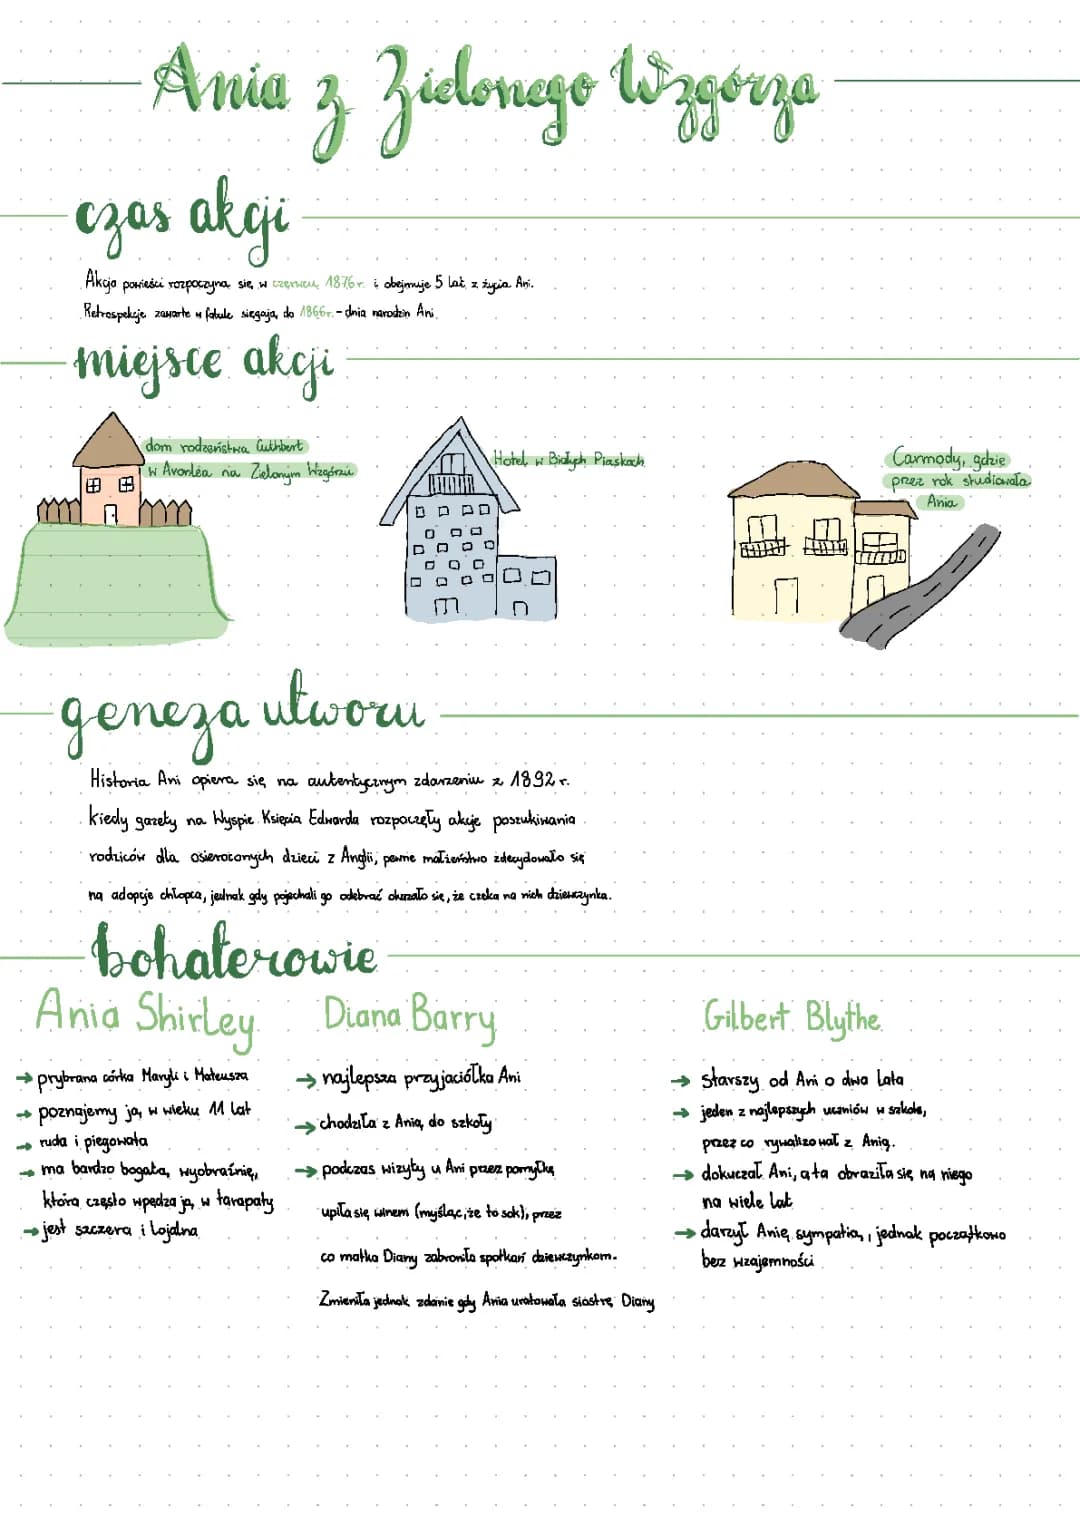 Ania z Zielonego Wzgórza
czas akcji
Akcja powieści rozpoczyna się w czerwcu 1876r. i obejmuje 5 lat z życia Ani.
Retrospekcje zawarte w fabule sięgają do 1866r. - dnia narodzin Ani.
miejsce akcji
dom rodzeństwa Cuthbert
w Avonlea na Zielonym Wzgórzu
Hotel w Białych Piaskach
Carmody, gdzie
przez rok studiowała
Ania
geneza utworu
Historia Ani opiera się na autentycznym zdarzeniu z 1892 r.
kiedy gazety na Wyspie Księcia Edwarda rozpoczęły akcję poszukiwania
rodziców dla osieroconych dzieci z Anglii, pewne małżeństwo zdecydowało się
na adopcję chłopca, jednak gdy pojechali go odebrać okazało się, że czeka na nich dziewczynka.
bohaterowie
Ania Shirley
→ prybrana córka Maryli i Mateusza
→ poznajemy ją w wieku 11 lat
→ ruda i piegowata
→ ma bardzo bogatą wyobraźnię,
która często wpędza ją w tarapaty
→ jest szczera i lojalna
Diana Barry
→ najlepsza przyjaciółka Ani
→ chodziła z Anią do szkoły
→ podczas wizyty u Ani przez pomyłkę
upiła się winem (myśląc, że to sok), przez
co matka Diany zabroniła spotkań dziewczynkom.
Zmieniła jednak zdanie gdy Ania uratowała siostrę Diany
Gilbert Blythe
→ starszy od Ani o dwa lata
→ jeden z najlepszych uczniów w szkole,
przez co rywalizował z Anią.
→ dokuczał Ani, a ta obraziła się na niego
na wiele lat
→ darzył Anię sympatią, jednak początkowo
bez wzajemności